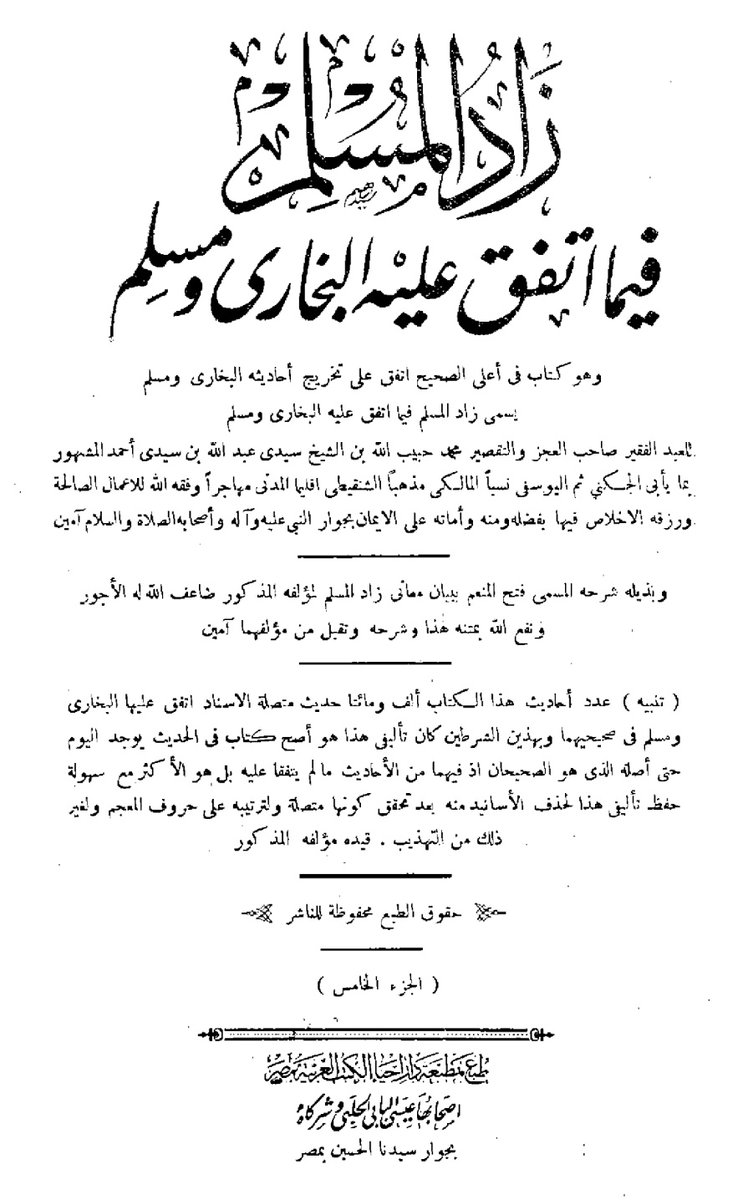 زَادُ المُسْلِم
فيما اتفق عليه البخارى ومسلم
وهو كتاب فى أعلى الصحيح اتفق على تخريج أحاديثه البخارى ومسلم
يسمى زاد المسلم فيما اتفق عليه البخارى ومسلم
للعبد الفقير صاحب العجز والتقصير محمد حبيب الله بن الشيخ سيدى عبد الله بن سيدى أحمد المشهور
بما يأبى الجكنى ثم اليوسفى نسباً المالكى مذهباً الشنقيطى اقليما المدنى مهاجراً وفقه الله للاعمال الصالحة
ورزقه الاخلاص فيها بفضله ومنه وأماته على الايمان بجوار النبى عليه وآله وأصحابه الصلاة والسلام آمين
وبذيله شرحه المسمى فتح المنعم ببيان معانى زاد المسلم لمؤلفه المذكور ضاعف الله له الأجور
ونفع الله بمتنه هذا وشرحه وتقبل من مؤلفهما آمين
( تنبيه ) عدد أحاديث هذا الكتاب ألف ومائتا حديث متصلة الاسناد اتفق عليها البخارى
ومسلم فى صحيحيهما وبهذين الشرطين كان تأليفى هذا هو أصح كتاب فى الحديث يوجد اليوم
حتى أصله الذى هو الصحيحان اذ فيهما من الأحاديث مالم يتفقا عليه بل هو الأكثر مع سهولة
حفظ تأليفى هذا لحذف الأسانيد منه بعد تحقق كونها متصلة ولترتيبه على حروف المعجم ولغير
ذلك من التهذيب . قيده مؤلفه المذكور
حقوق الطبع محفوظة للناشر
( الجزء الخامس )
طبع بمطبعة دار إحياء الكتب العربية بمصر
اصحابها عيسى البابى الحلبى وشركاه
بجوار سيدنا الحسين بمصر